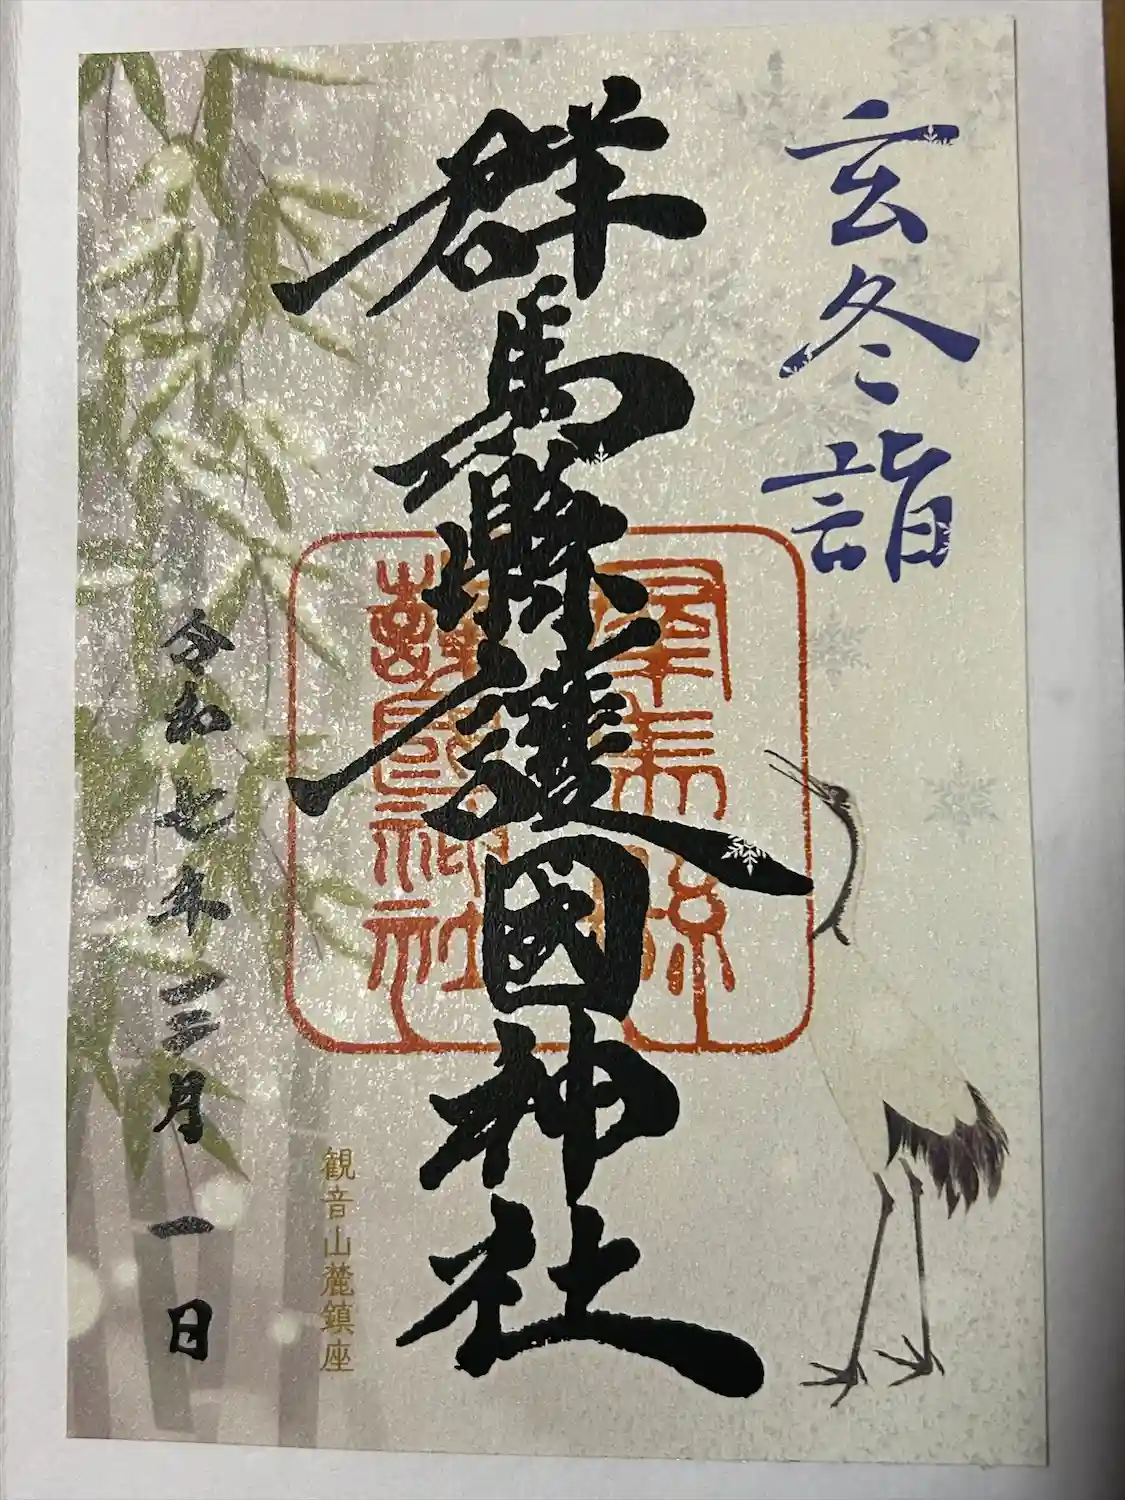 玄冬詣
群馬縣護國神社
群馬縣
護國神社
観音山麓鎮座
令和七年一二月一日